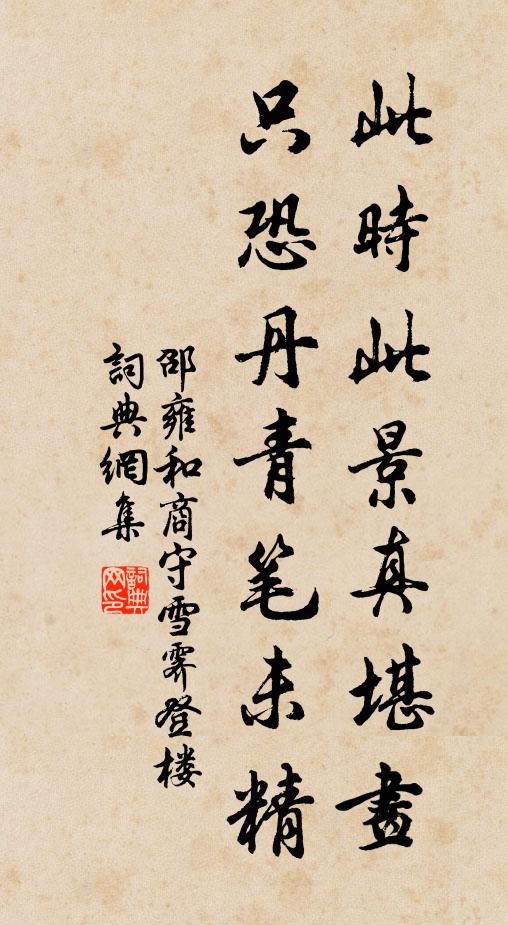 此時此景真堪畫
只恐丹青笔未精
邵雍和商守雪霽登楼
詞典網集
詞典网印